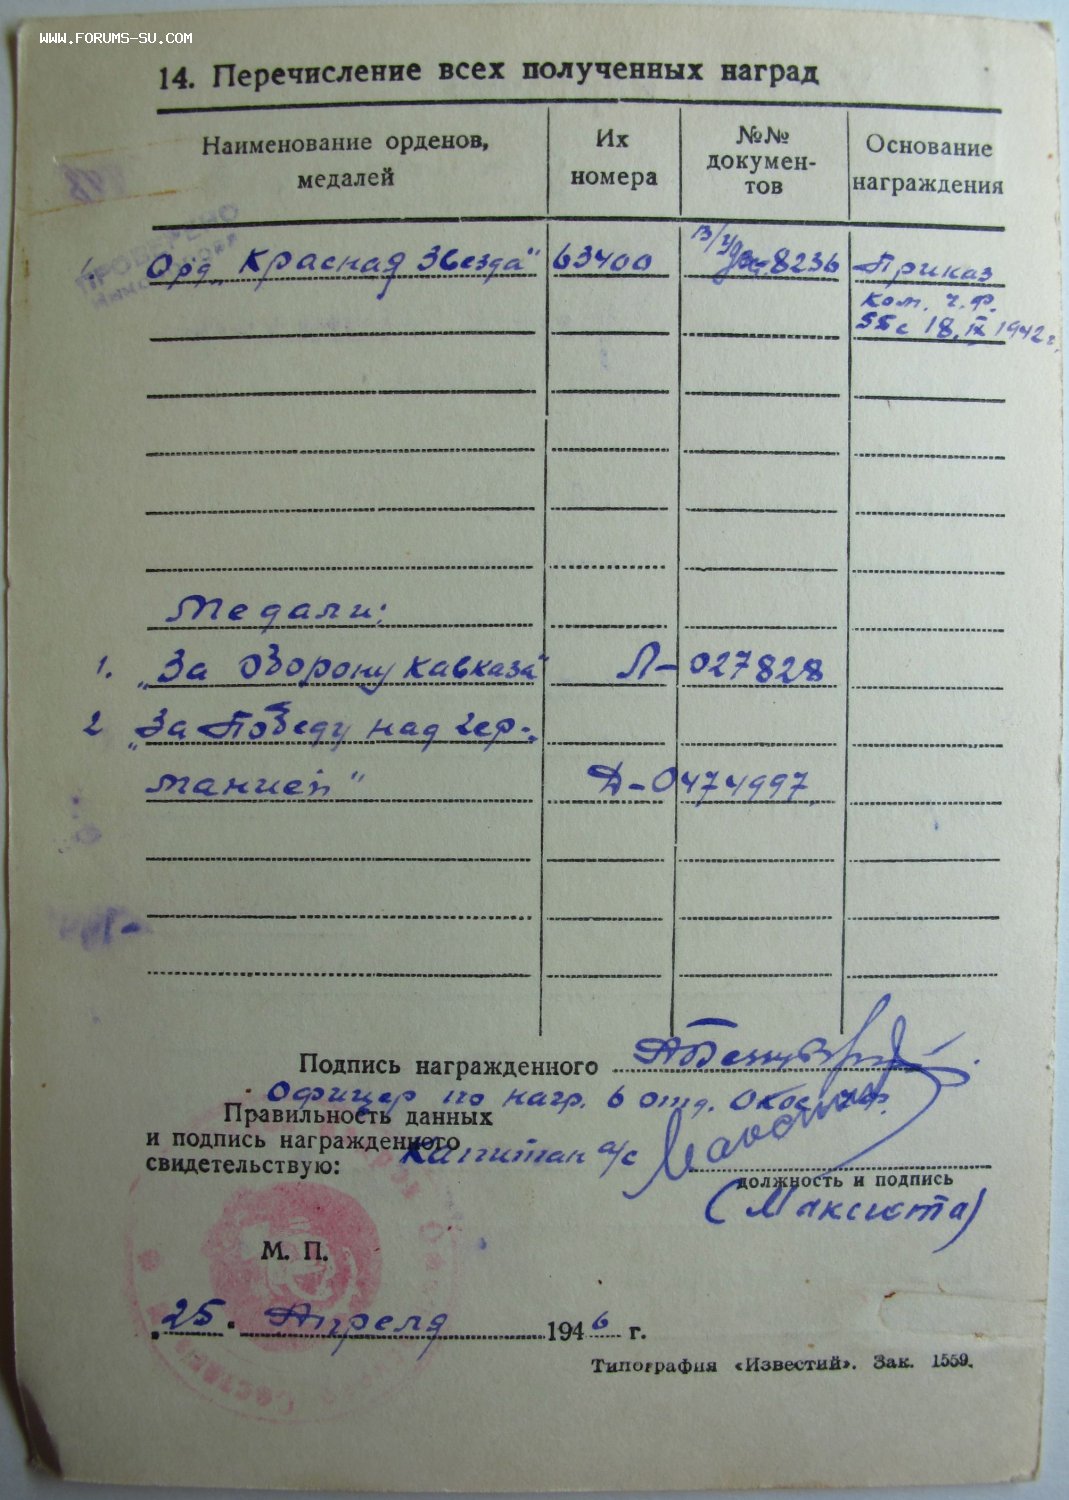 WWW.FORUMS-SU.COM
14. Перечисление всех полученных наград
Наименование орденов, медалей
Их номера
№№ докумен-тов
Основание награждения
ПРОВЕРЕНО
1. Орд. „Красная Звезда" 63400 В/Удос 8236 Приказ
Ком. Ч.Ф.
55с 18.IX 1942г.
Медали:
1. „За Оборону Кавказа" Л-027828
2 „За Победу над Гер-
манией" Д-0474997
Подпись награжденного
Офицер по нагр. 6 отд.
Правильность данных
и подпись награжденного
свидетельствую:
Капитан а/с
должность и подпись
(Максюта)
М. П.
„25" Апреля 1946 г.
Типография «Известий». Зак. 1559.